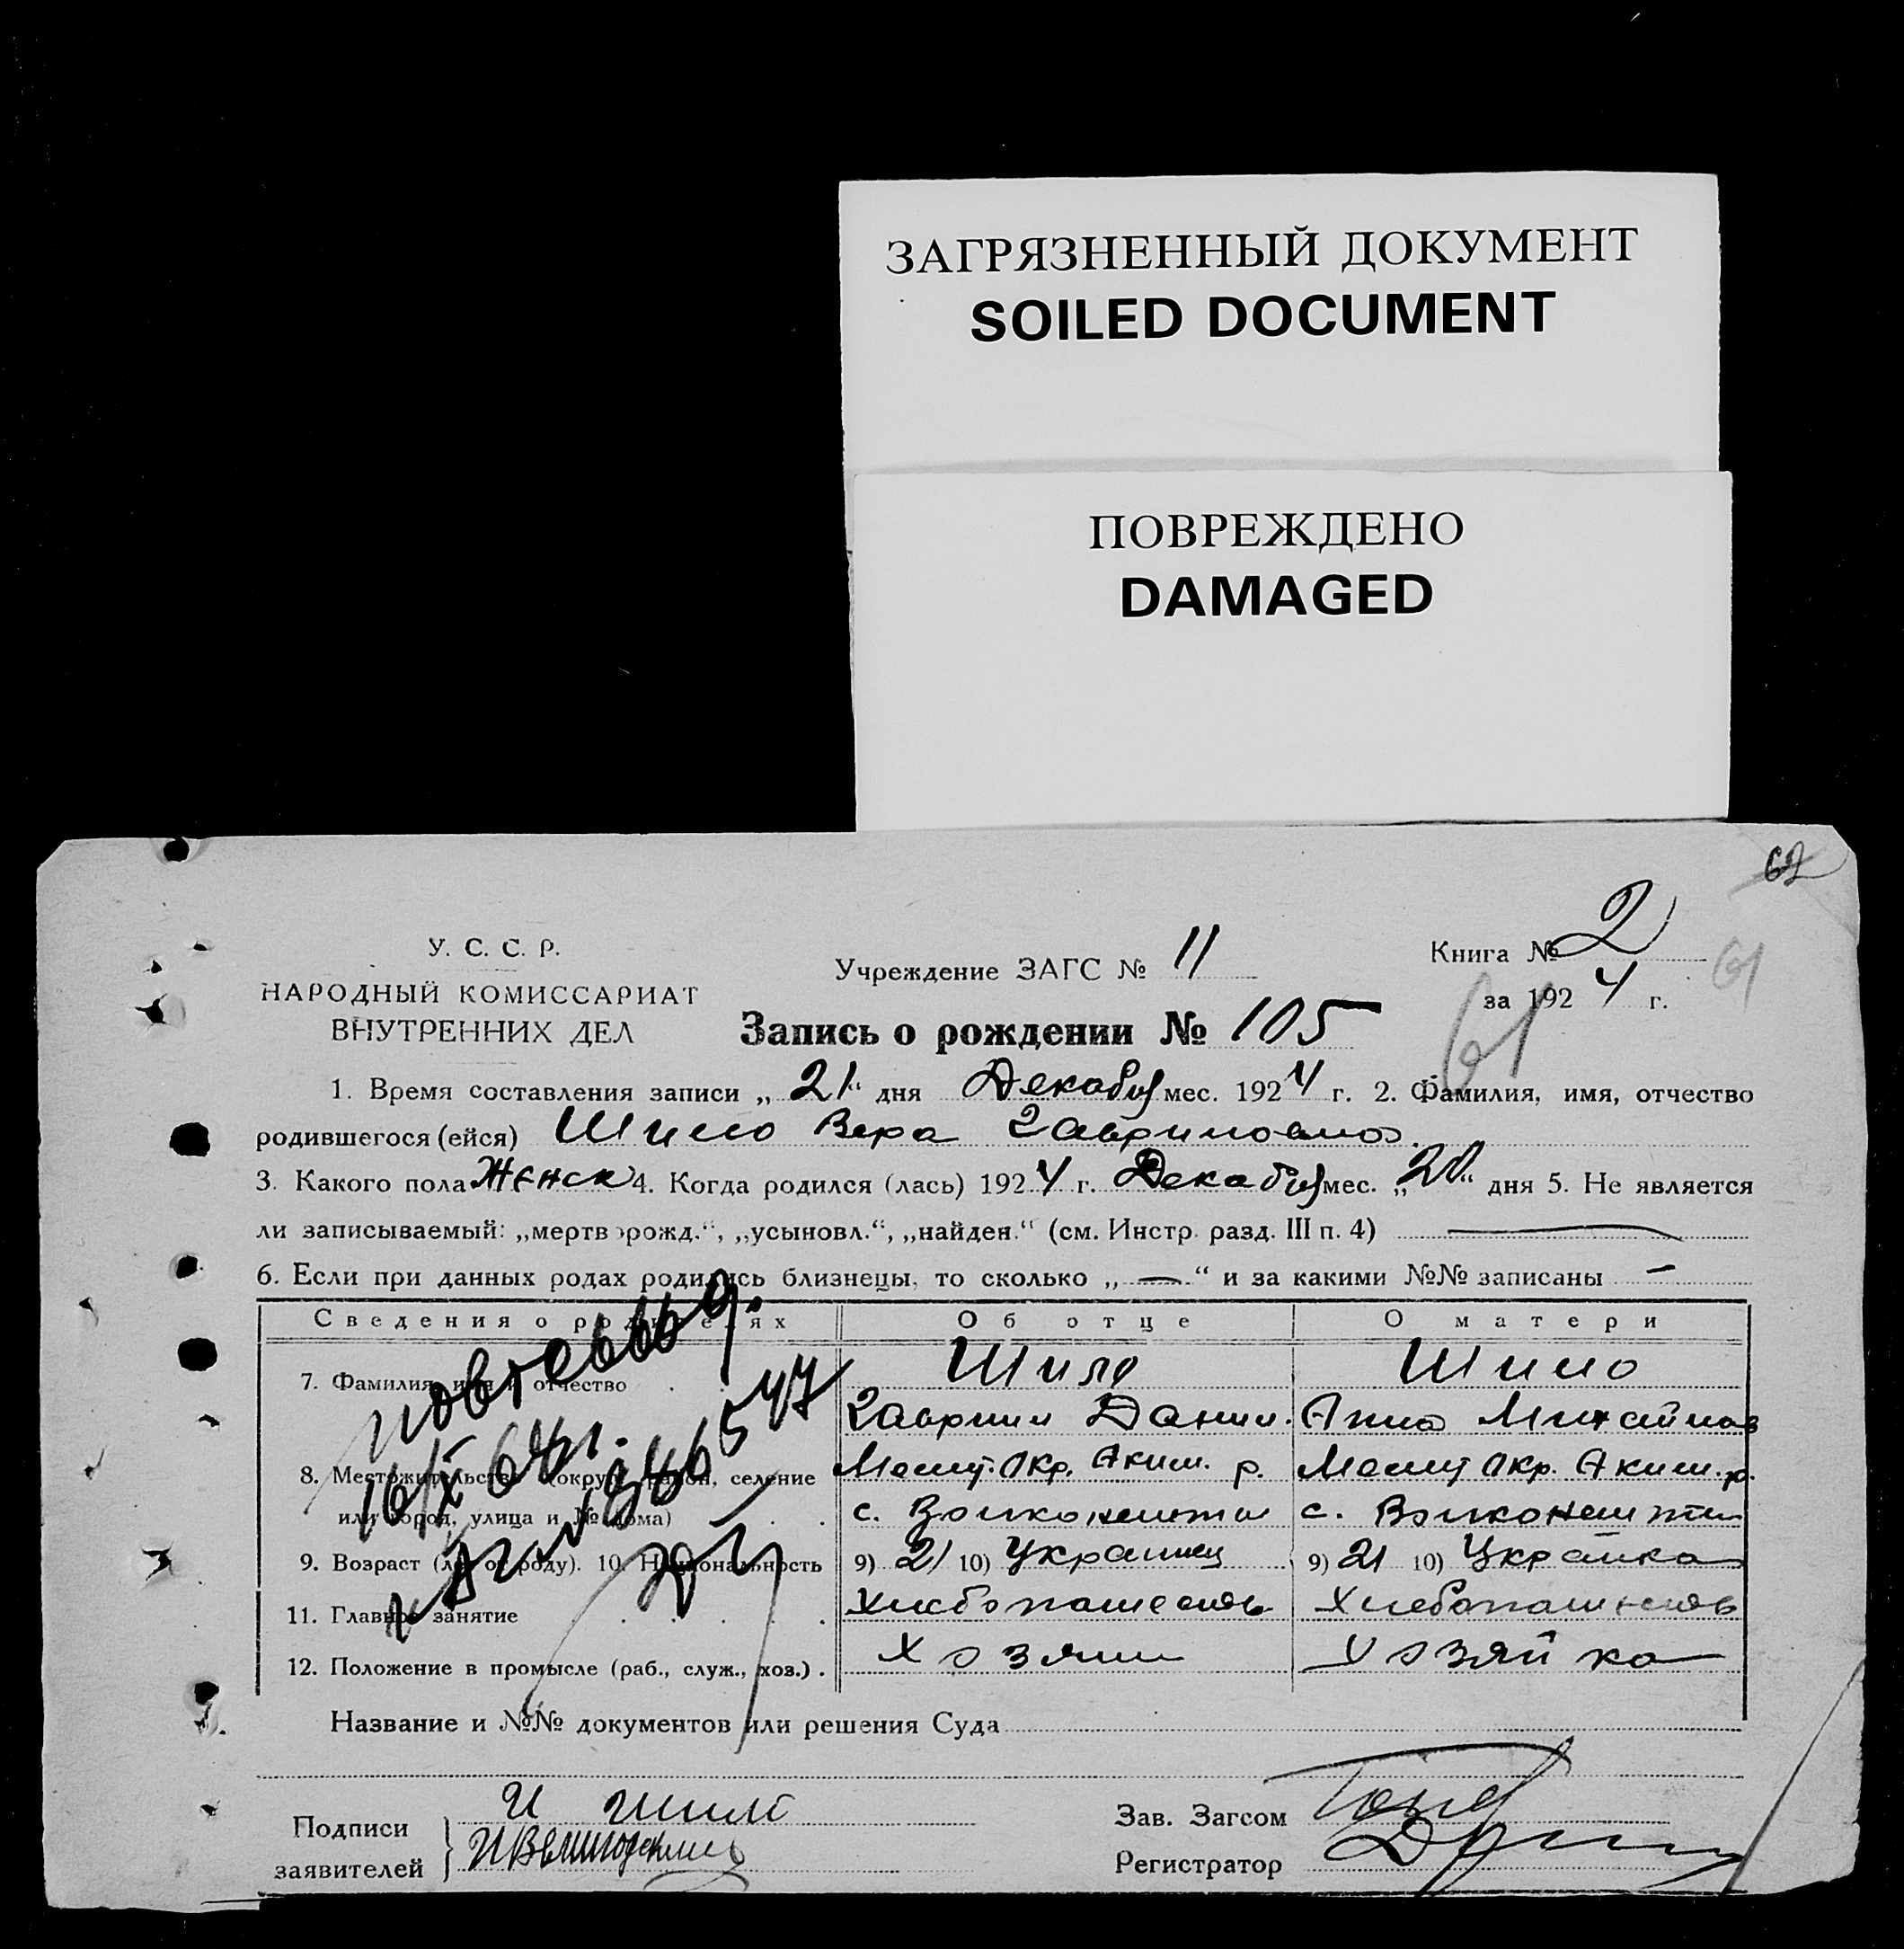 ЗАГРЯЗНЕННЫЙ ДОКУМЕНТ
SOILED DOCUMENT
ПОВРЕЖДЕНО
DAMAGED
62
У. С. С. Р.
НАРОДНЫЙ КОМИССАРИАТ
ВНУТРЕННИХ ДЕЛ
Учреждение ЗАГС № 11
Книга № 2
за 1924 г.
61
61
Запись о рождении № 105
1. Время составления записи „ 21 “ дня Декабря мес. 1924 г. 2. Фамилия, имя, отчество
родившегося (ейся) Шило Вера Гавриловна.
3. Какого пола Женск 4. Когда родился (лась) 1924 г. Декабря мес. „ 20 “ дня 5. Не является
ли записываемый: „мертворожд.“, „усыновл.“, „найден.“ (см. Инстр. разд. III п. 4) —
6. Если при данных родах родились близнецы, то сколько „ — “ и за какими №№ записаны —
Сведения о родителях Об отце О матери
7. Фамилия, имя и отчество Шило Шило
Гавриил Данил. Анна Михайлов
8. Местожительство (округ, район, селение Мелит. Окр. Аким. р. Мелит Окр. Аким. р.
или город, улица и № дома) с. Волконешти с. Волконешти
9. Возраст (лет от роду). 10. Национальность 9) 21 10) Украинец 9) 21 10) Украинка
11. Главное занятие Хлебопашество Хлебопашество
12. Положение в промысле (раб., служ., хоз.) Хозяин Хозяйка
Название и №№ документов или решения Суда
Подписи
заявителей
И Шило
Зав. Загсом
Регистратор